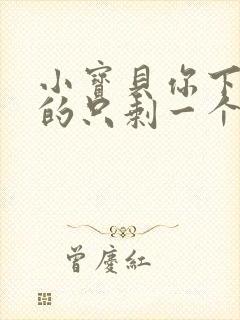 小寶貝你下
的只剩一个
曾慶紅